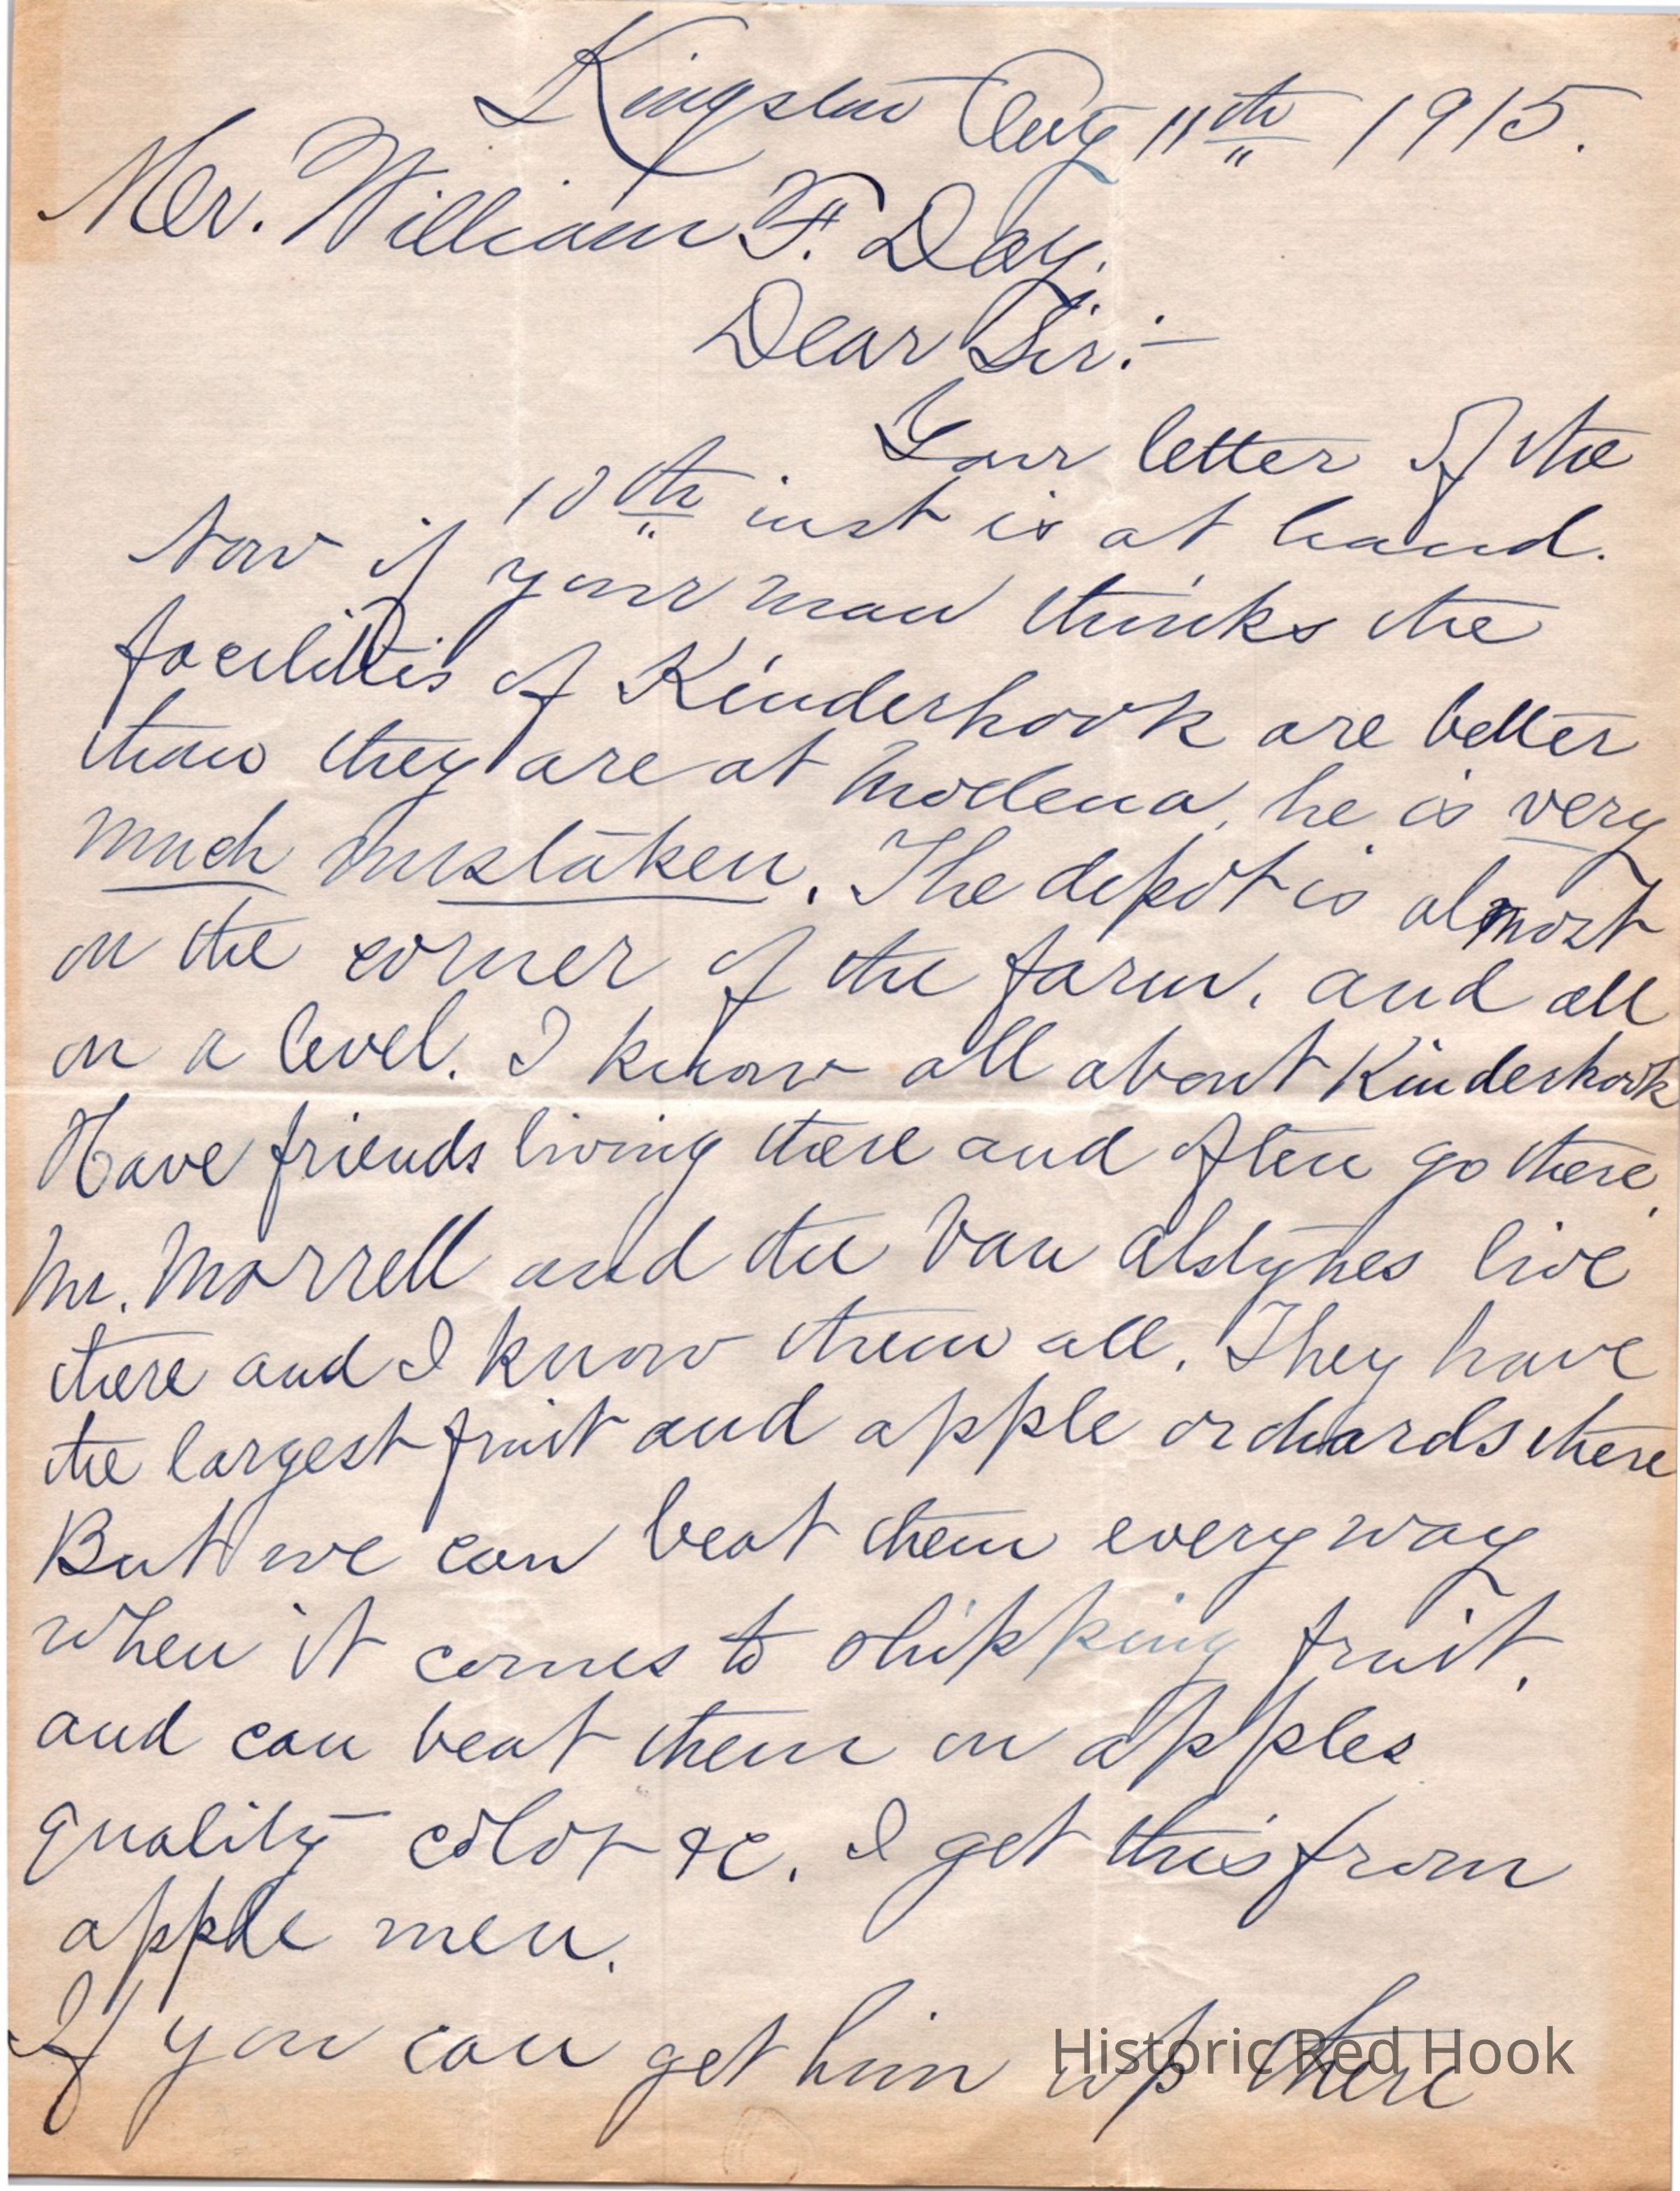 Kingston Aug 11th 1915.
Mr. William F. Day.
Dear Sir:—
Your letter of the
10th inst is at hand.
Now if your man thinks the
facilities of Kinderhook are better
than they are at Modena, he is very
much mistaken. The depot is almost
on the corner of the farm, and all
on a level. I know all about Kinderhook
Have friends living there and often go there.
Mr. Morrell and the Van Alstynes live
there and I know them all. They have
the largest fruit and apple orchards there
But we can beat them every way
when it comes to shipping fruit,
and can beat them on apples
quality color &c. I get this from
apple men.
If you can get him up there
Historic Red Hook